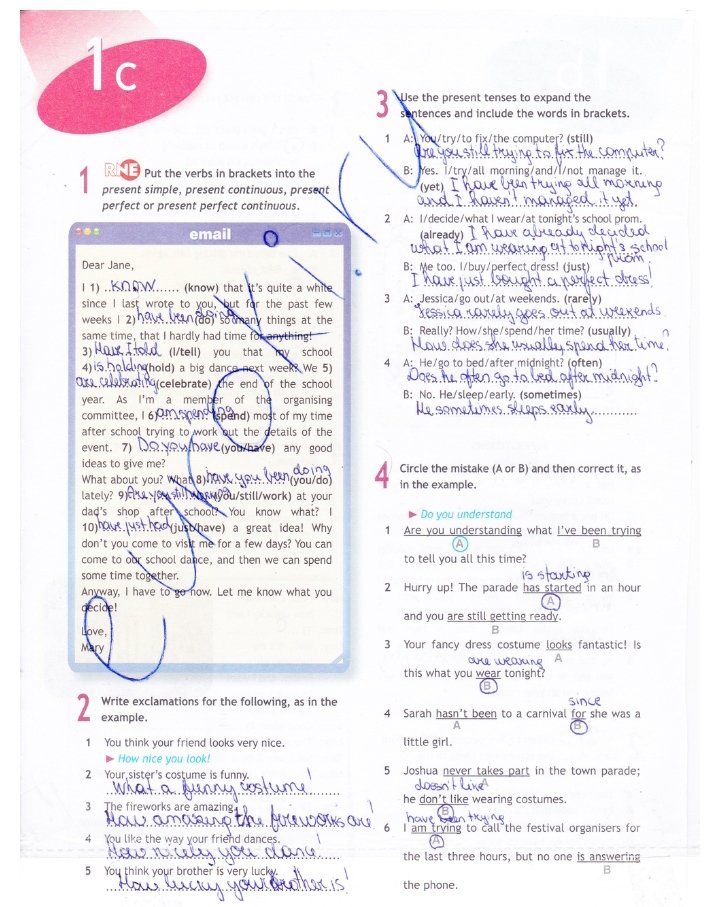 1c
1 RNE Put the verbs in brackets into the
present simple, present continuous, present
perfect or present perfect continuous.
email
Dear Jane,
I 1) know (know) that it's quite a while
since I last wrote to you, but for the past few
weeks I 2) have been doing (do) so many things at the
same time, that I hardly had time for anything!
3) Have I told (I/tell) you that my school
4) is holding (hold) a big dance next week? We 5)
are celebrating (celebrate) the end of the school
year. As I'm a member of the organising
committee, I 6) am spending (spend) most of my time
after school trying to work out the details of the
event. 7) Do you have (you/have) any good
ideas to give me?
What about you? What 8) have you been doing (you/do)
lately? 9) Are you still working (you/still/work) at your
dad's shop after school? You know what? I
10) have just had (just/have) a great idea! Why
don't you come to visit me for a few days? You can
come to our school dance, and then we can spend
some time together.
Anyway, I have to go now. Let me know what you
decide!
Love,
Mary
2 Write exclamations for the following, as in the
example.
1 You think your friend looks very nice.
► How nice you look!
2 Your sister's costume is funny.
What a funny costume!
3 The fireworks are amazing.
How amazing the fireworks are!
4 You like the way your friend dances.
How nicely you dance!
5 You think your brother is very lucky.
How lucky your brother is!
3 Use the present tenses to expand the
sentences and include the words in brackets.
1 A: You/try/to fix/the computer? (still)
Are you still trying to fix the computer?
B: Yes. I/try/all morning/and/I/not manage it.
(yet) I have been trying all morning
and I haven't managed it yet.
2 A: I/decide/what I wear/at tonight's school prom.
(already) I have already decided
what I am wearing at tonight's school
prom.
B: Me too. I/buy/perfect dress! (just)
I have just bought a perfect dress!
3 A: Jessica/go out/at weekends. (rarely)
Jessica rarely goes out at weekends.
B: Really? How/she/spend/her time? (usually)
How does she usually spend her time?
4 A: He/go to bed/after midnight? (often)
Does he often go to bed after midnight?
B: No. He/sleep/early. (sometimes)
He sometimes sleeps early.
4 Circle the mistake (A or B) and then correct it, as
in the example.
► Do you understand
1 Are you understanding what I've been trying
A B
to tell you all this time?
is starting
2 Hurry up! The parade has started in an hour
A
and you are still getting ready.
B
3 Your fancy dress costume looks fantastic! Is
are wearing A
this what you wear tonight?
B
since
4 Sarah hasn't been to a carnival for she was a
A B
little girl.
5 Joshua never takes part in the town parade;
doesn't like A
he don't like wearing costumes.
B
have been trying
6 I am trying to call the festival organisers for
A
the last three hours, but no one is answering
B
the phone.